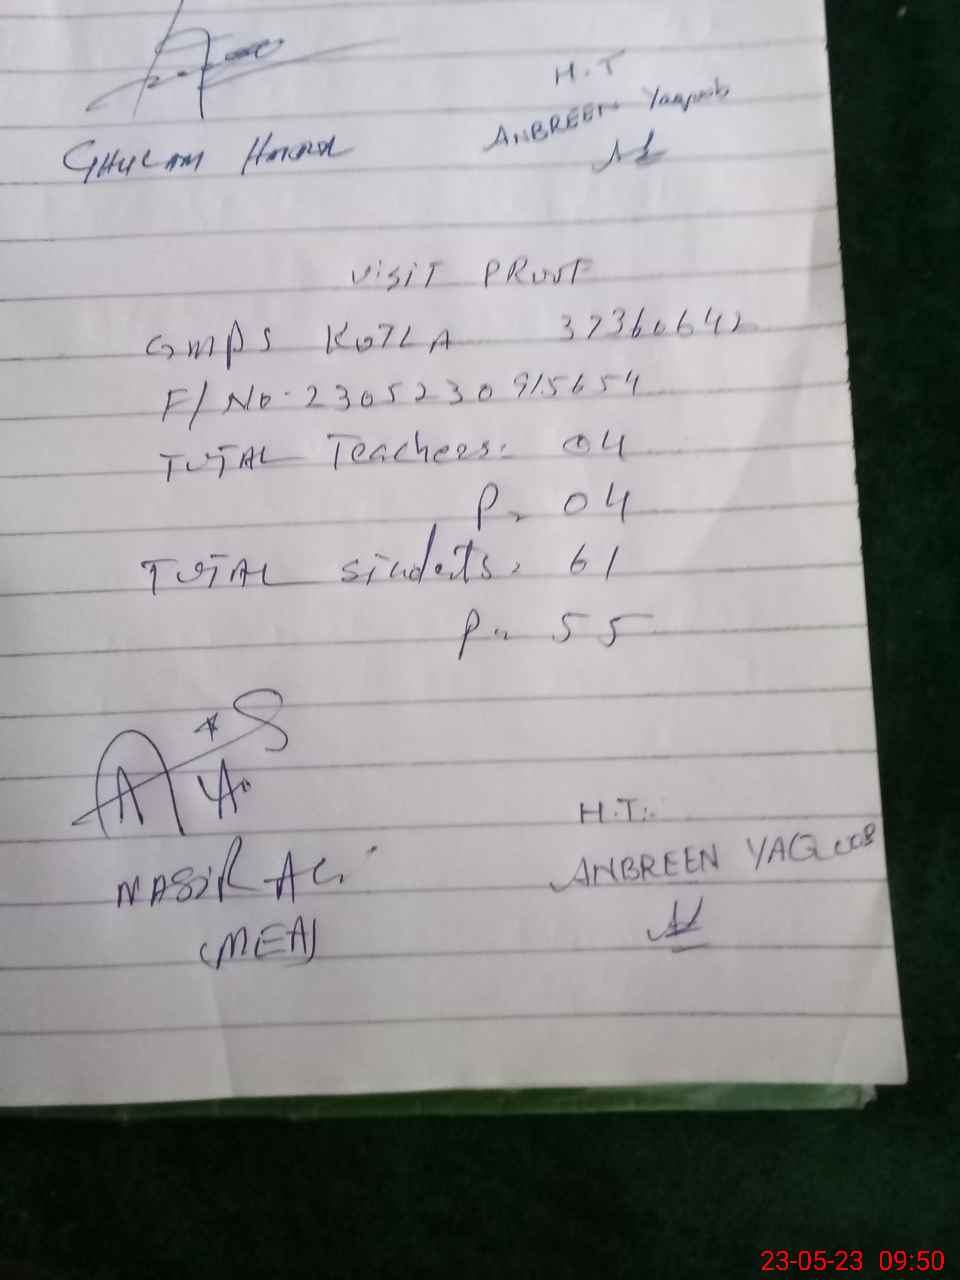 H.T
GHULAM ANBREEN Yaqoob
VISIT PROOF
GMPS KOTLA 37360642
F/No. 2305230915654
TOTAL Teachers: 04
P. 04
TOTAL students. 61
P. 55
H.T:
NASIR ALI ANBREEN YAQOOB
(MEA)
23-05-23 09:50